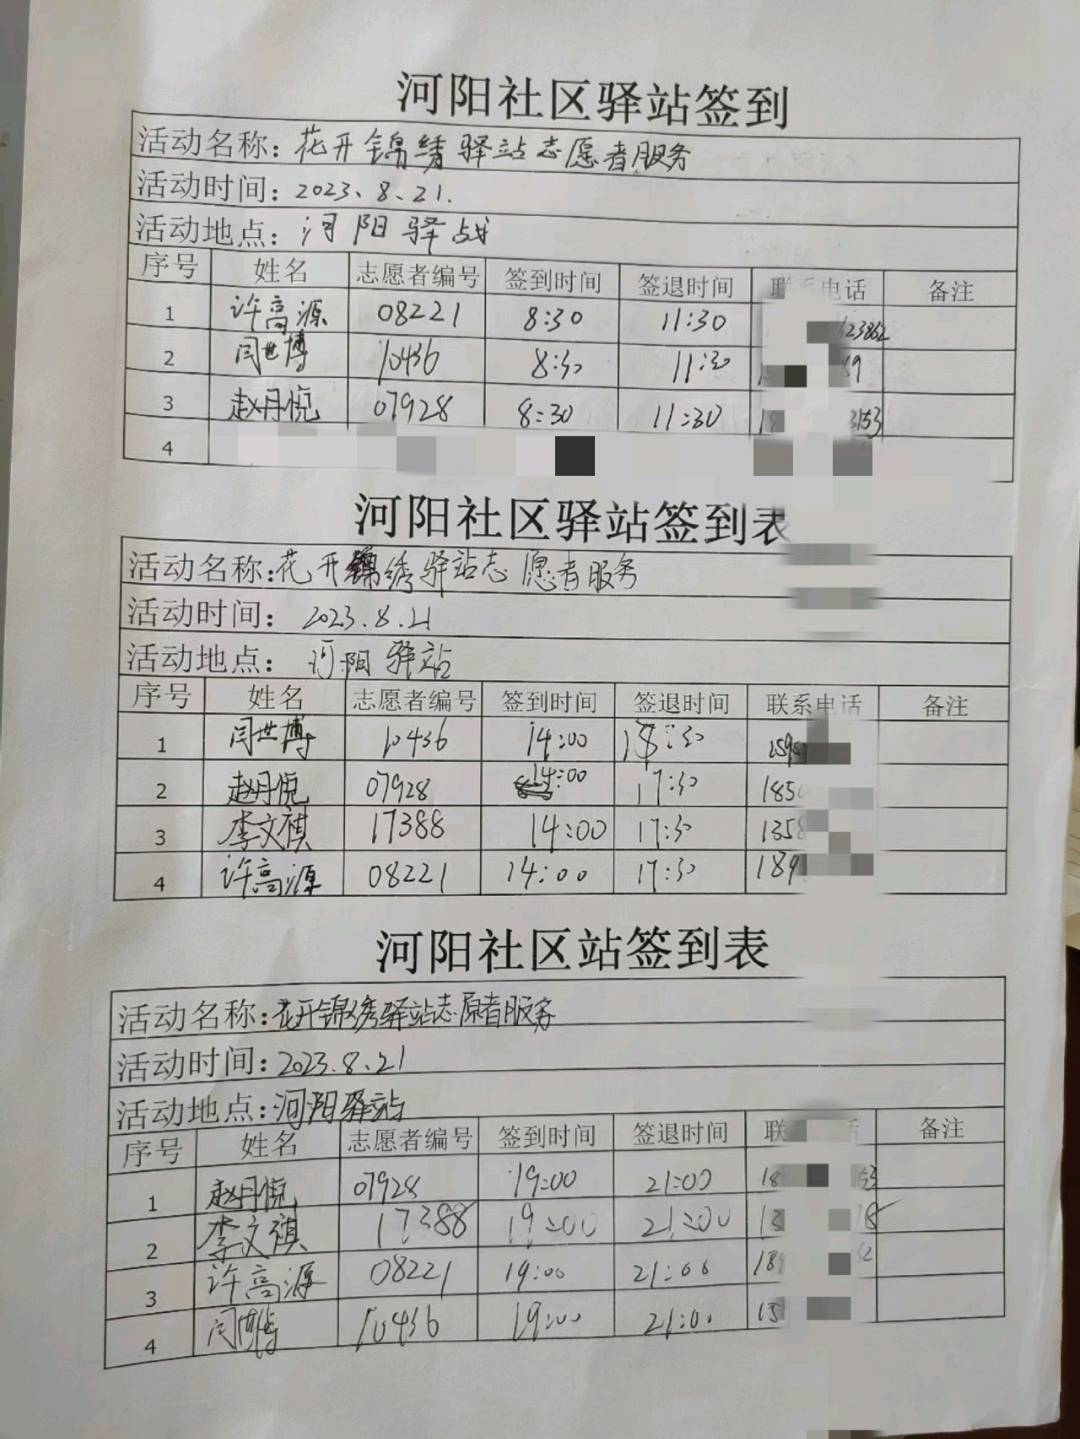 河阳社区驿站签到
活动名称：花开锦绣驿站志愿者服务
活动时间：2023、8、21.
活动地点：河阳驿战
序号 姓名 志愿者编号 签到时间 签退时间 电话 备注
1 许高源 08221 8:30 11:30 123862
2 闫世博 10436 8:30 11:30
3 赵月悦 07928 8:30 11:30 18 3153
4
河阳社区驿站签到表
活动名称：花开锦绣驿站志愿者服务
活动时间：2023.8.21
活动地点：河阳驿站
序号 姓名 志愿者编号 签到时间 签退时间 联系电话 备注
1 闫世博 10436 14:00 :30
2 赵月悦 07928 14:00 17:30 185
3 李文祺 17388 14:00 17:30 1358
4 许高源 08221 14:00 17:30 189
河阳社区站签到表
活动名称：花开锦绣驿站志愿者服务
活动时间：2023.8.21
活动地点：河阳驿站
序号 姓名 志愿者编号 签到时间 签退时间 联 话 备注
1 赵月悦 07928 19:00 21:00 18 53
2 李文祺 17388 19:00 21:00 13
3 许高源 08221 19:00 21:00 189
4 闫 博 10436 19:00 21:00 15